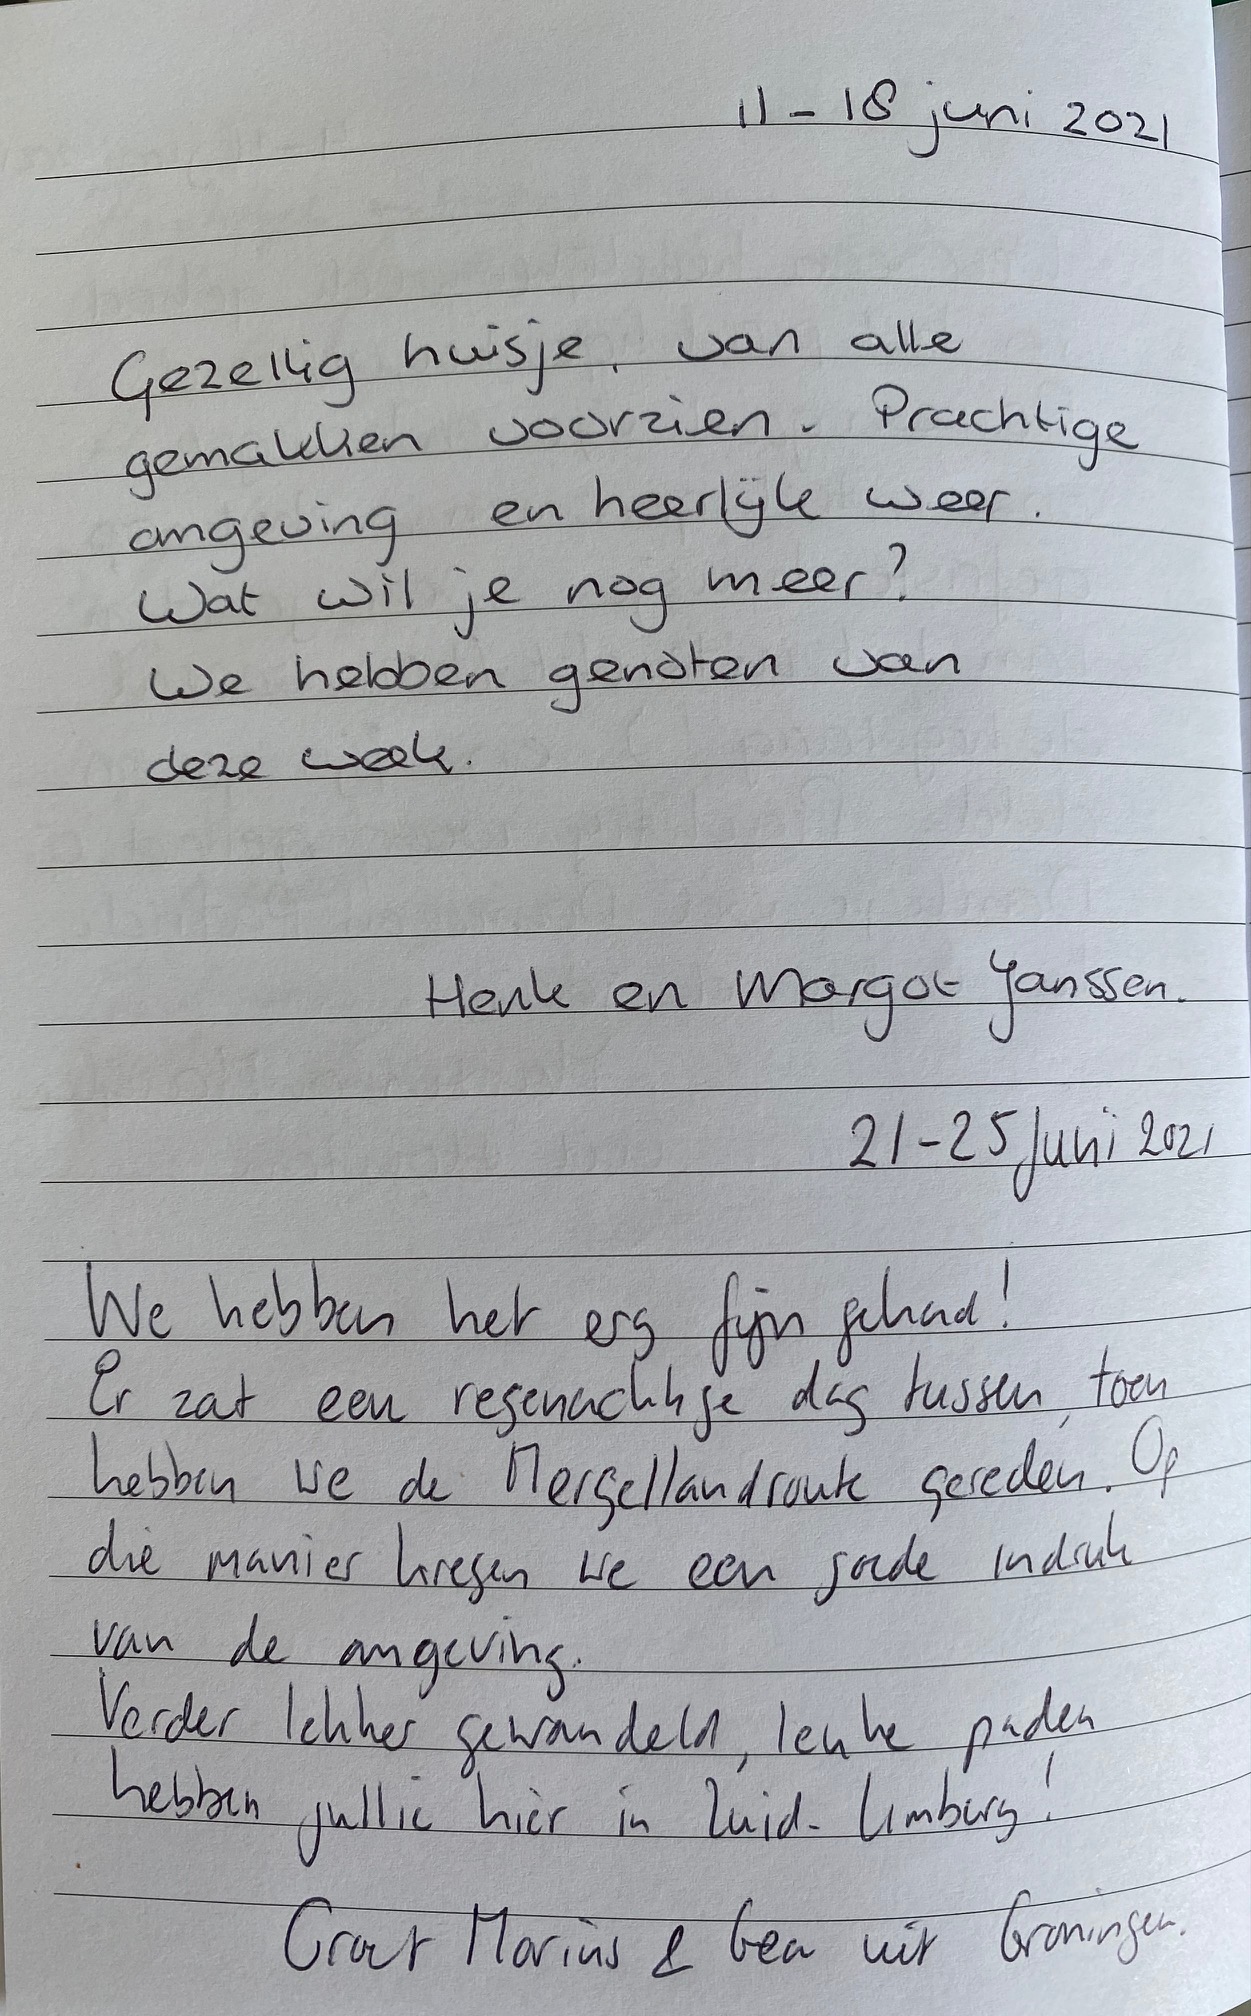 11 - 18 juni 2021
Gezellig huisje, van alle
gemakken voorzien. Prachtige
omgeving en heerlijk weer.
Wat wil je nog meer?
We hebben genoten van
deze week.
Henk en Margot Janssen.
21-25 Juni 2021
We hebben het erg fijn gehad!
Er zat een regenachtige dag tussen, toen
hebben we de Mergellandroute gereden. Op
die manier kregen we een goede indruk
van de omgeving.
Verder lekker gewandeld, leuke paden
hebben jullie hier in Zuid-Limburg!
Groet Marius & Gea uit Groningen.